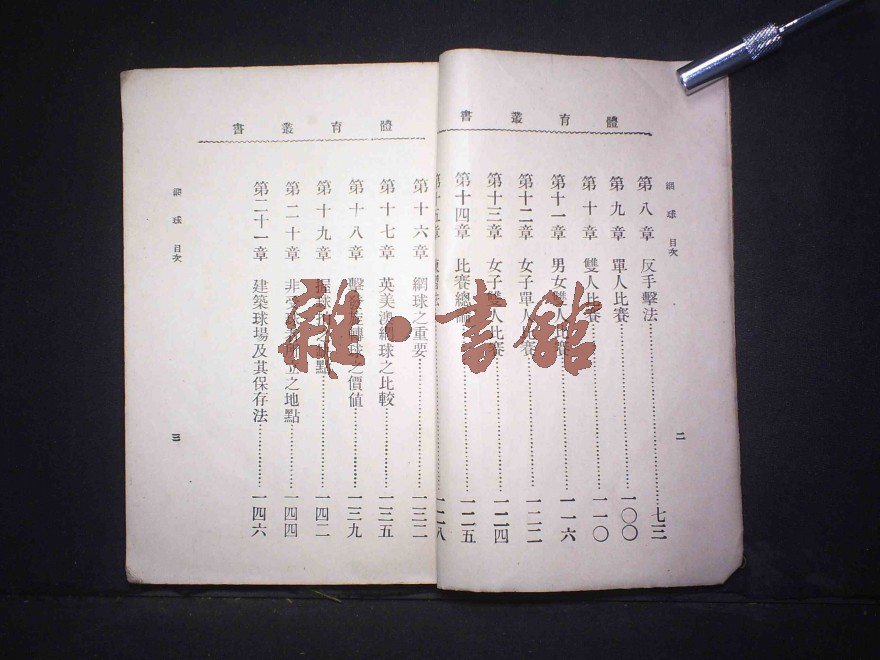 體育叢書
網球 目次
第八章 反手擊法 七三
第九章 單人比賽 一〇〇
第十章 雙人比賽 一一〇
第十一章 男女雙人比賽 一一六
第十二章 女子單人比賽 一二二
第十三章 女子雙人比賽 一二四
第十四章 比賽總 一二五
二
體育叢書
第十五章 習法 一二八
第十六章 網球之重要 一三二
第十七章 英美澳網球之比較 一三五
第十八章 擊 轉球之價值 一三九
第十九章 球 點 一四二
第二十章 非受 所立之地點 一四四
第二十一章 建築球場及其保存法 一四六
網球 目次
三
雜·書館